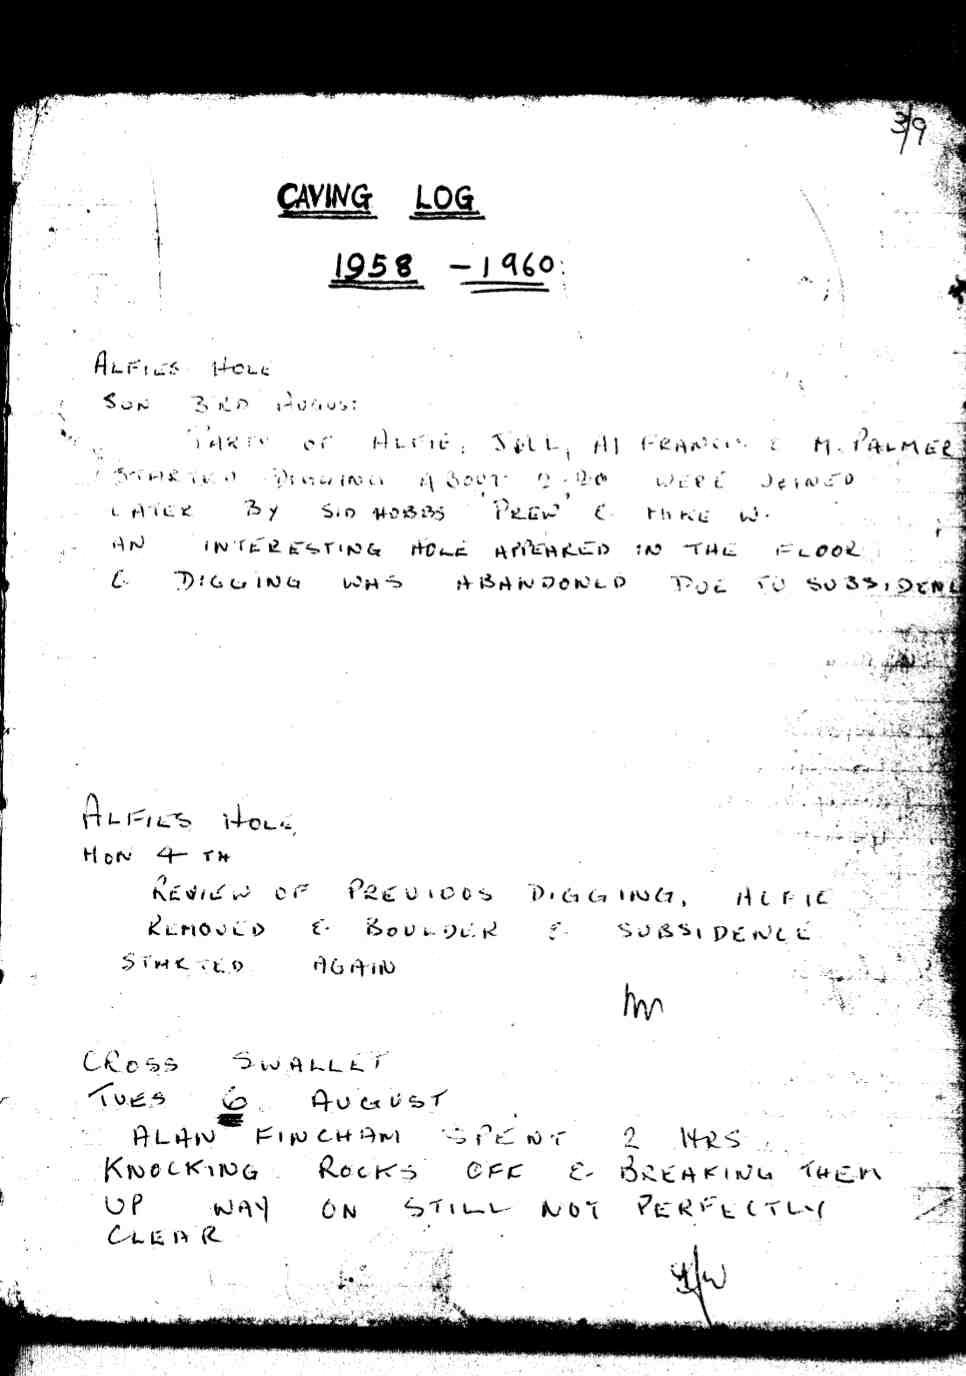 3/9
CAVING LOG
1958 - 1960:
ALFIES HOLE
SUN 3RD AUGUST
PARTY OF ALFIE, JILL, Al FRANCIS & M. PALMER
STARTED DIGGING ABOUT 2.20 WERE JOINED
LATER BY SID HOBBS 'PREW' & MIKE W.
AN INTERESTING HOLE APPEARED IN THE FLOOR
& DIGGING WAS ABANDONED DUE TO SUBSIDENC
ALFIES HOLE,
MON 4 TH
REVIEW OF PREVIOUS DIGGING, ALFIE
REMOVED & BOULDER & SUBSIDENCE
STARTED AGAIN
CROSS SWALLET
TUES 6 AUGUST
ALAN FINCHAM SPENT 2 HRS
KNOCKING ROCKS OFF & BREAKING THEM
UP WAY ON STILL NOT PERFECTLY
CLEAR